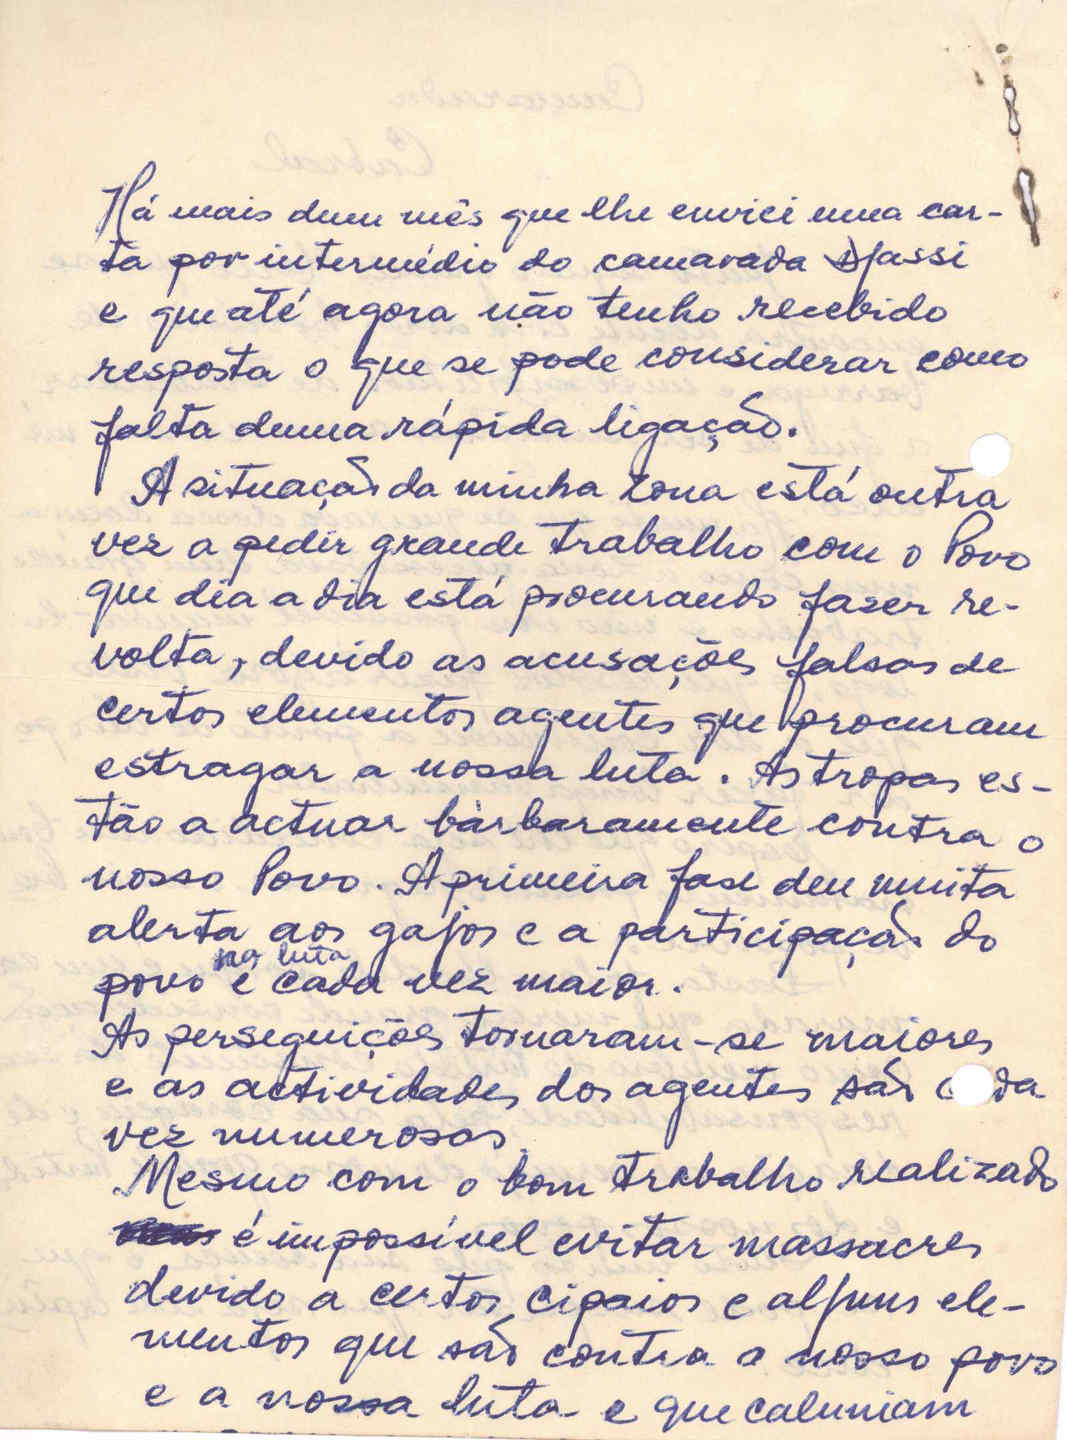 Há mais dum mês que lhe enviei uma car-
ta por intermédio do camarada Djassi
e que até agora não tenho recebido
resposta o que se pode considerar como
falta duma rápida ligação.
A situação da minha zona está outra
vez a pedir grande trabalho com o Povo
que dia a dia está procurando fazer re-
volta, devido as acusações falsas de
certos elementos agentes que procuram
estragar a nossa luta. As tropas es-
tão a actuar bàrbaramente contra o
nosso Povo. A primeira fase deu muita
alerta aos gajos e a participação do
povo na luta é cada vez maior.
As perseguições tornaram-se maiores
e as actividades dos agentes são cada
vez numerosas
Mesmo com o bom trabalho realizado
é impossível evitar massacres
devido a certos cipaios e alguns ele-
mentos que são contra o nosso povo
e a nossa luta e que caluniam